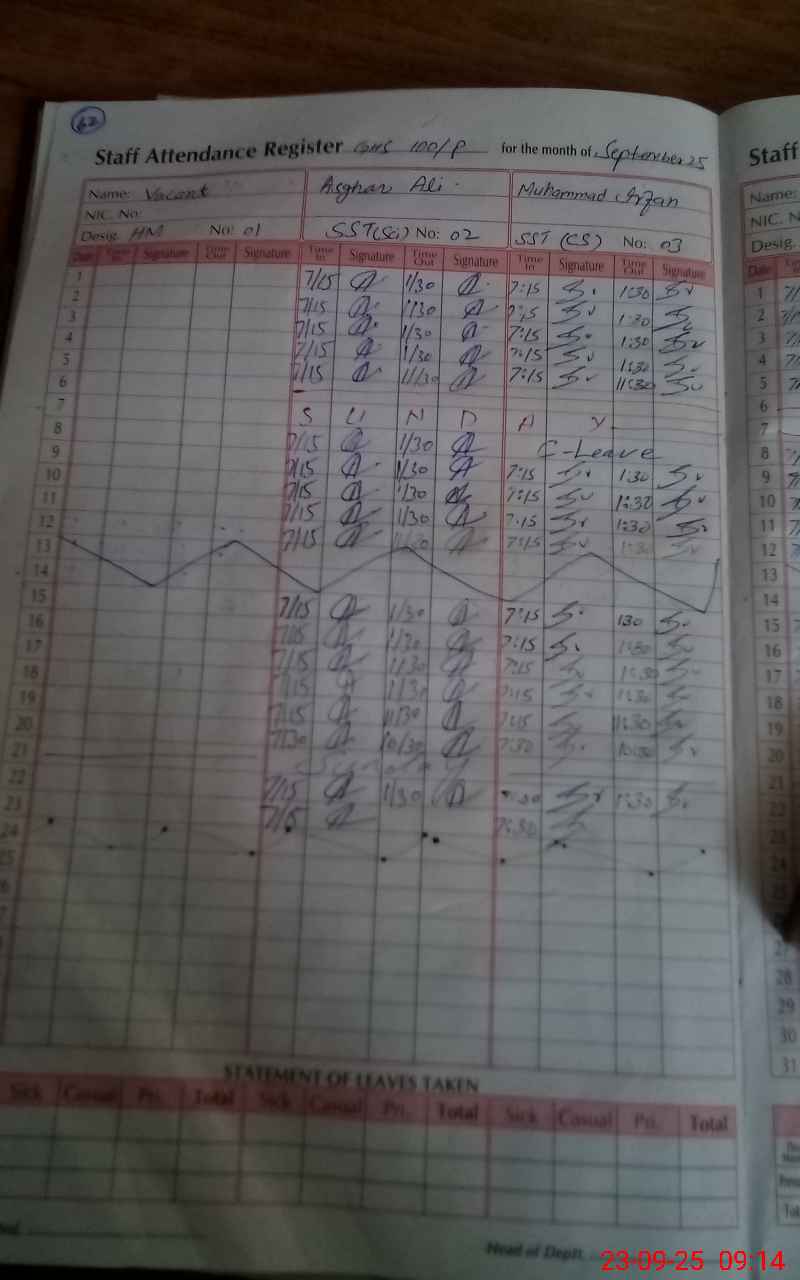 62
Staff Attendance Register GHS 100/P for the month of September 25
Name: Vacant Asghar Ali Muhammad Irfan
NIC. No:
Desig. HM No: 01 SST(Sci) No: 02 SST (CS) No: 03
Date Time In Signature Time Out Signature Time In Signature Time Out Signature Time In Signature Time Out Signature
1 7/15 1/30 7:15 1:30
2 7/15 1/30 7:15 1:30
3 7/15 1/30 7:15 1:30
4 7/15 1/30 7:15 1:30
5 7/15 11/30 7:15 11:30
6
7 S U N D A Y
8 7/15 1/30 C-Leave
9 7/15 1/30 7:15 1:30
10 7/15 1/30 7:15 1:30
11 7/15 1/30 7:15 1:30
12 7/15 7:15
13
14
15 7/15 1/30 7:15 130
16 7/15 1/30 7:15 1:30
17 7/15 1/30 7:15 1:30
18 7/15 1/30 7:15 1:30
19 7/15 11/30 7:15 11:30
20 7/30 10/30 7:30 10:30
21 Sunday
22 7/15 1/30 7:30 1:30
23 7/15 7:30
24
25
STATEMENT OF LEAVES TAKEN
Sick Casual Pri. Total Sick Casual Pri. Total Sick Casual Pri. Total
Head of Deptt.
Staff
Name:
NIC. N
Desig.
Date
1
2
3
4
5
6
7
8
9
10
11
12
13
14
15
16
17
18
19
20
21
22
23
24
27
28
29
30
31
23-09-25 09:14